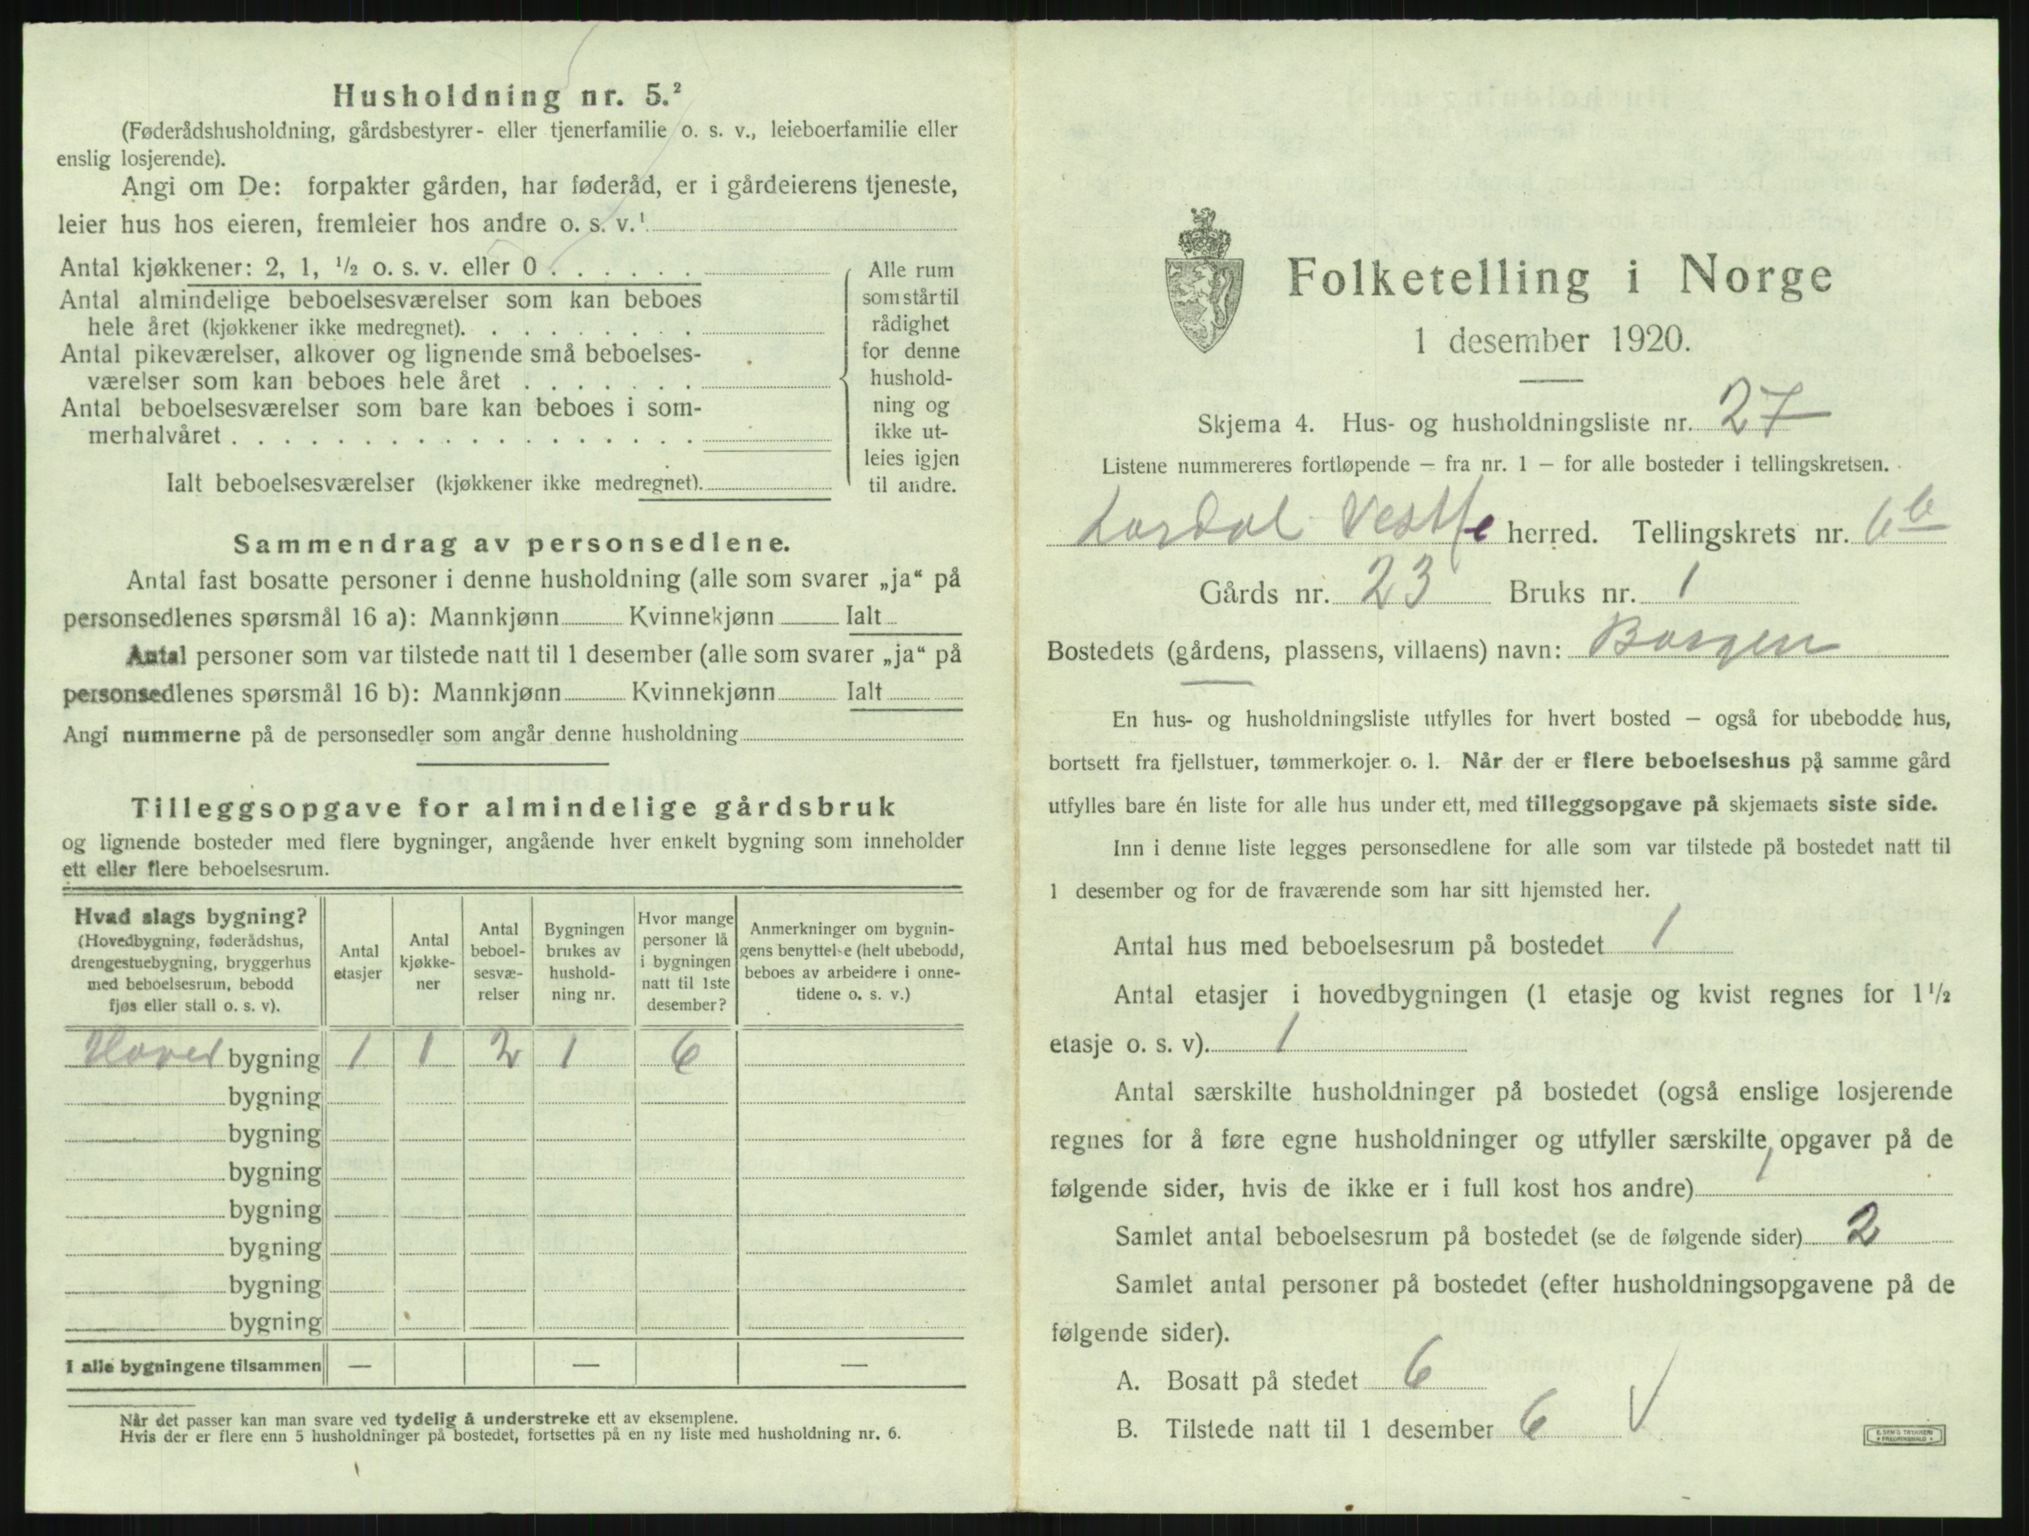 Husholdning nr. 5.²
(Føderådshusholdning, gårdsbestyrer- eller tjenerfamilie o. s. v., leieboerfamilie eller
enslig losjerende).
Angi om De: forpakter gården, har føderåd, er i gårdeierens tjeneste,
leier hus hos eieren, fremleier hos andre o. s. v.¹
Antal kjøkkener: 2, 1, ½ o. s. v. eller 0 . . . . . .
Antal almindelige beboelsesværelser som kan beboes
hele året (kjøkkener ikke medregnet). . . . . . . . .
Antal pikeværelser, alkover og lignende små beboelses-
værelser som kan beboes hele året . . . . . . .
Antal beboelsesværelser som bare kan beboes i som-
merhalvåret . . . . . . . . . . . . . . . . . .
Ialt beboelsesværelser (kjøkkener ikke medregnet).
Alle rum
som står til
rådighet
for denne
hushold-
ning og
ikke ut-
leies igjen
til andre.
Sammendrag av personsedlene.
Antal fast bosatte personer i denne husholdning (alle som svarer „ja“ på
personsedlenes spørsmål 16 a): Mannkjønn Kvinnekjønn Ialt
Antal personer som var tilstede natt til 1 desember (alle som svarer „ja“ på
personsedlenes spørsmål 16 b): Mannkjønn Kvinnekjønn Ialt
Angi nummerne på de personsedler som angår denne husholdning
Tilleggsopgave for almindelige gårdsbruk
og lignende bosteder med flere bygninger, angående hver enkelt bygning som inneholder
ett eller flere beboelsesrum.
Hvad slags bygning?
(Hovedbygning, føderådshus,
drengestuebygning, bryggerhus
med beboelsesrum, bebodd
fjøs eller stall o. s. v).
Antal
etasjer
Antal
kjøkke-
ner
Antal
beboel-
sesvæ-
relser
Bygningen
brukes av
hushold-
ning nr.
Hvor mange
personer lå
i bygningen
natt til 1ste
desember?
Anmerkninger om bygnin-
gens benyttelse (helt ubebodd,
beboes av arbeidere i onne-
tidene o. s. v.)
Hoved bygning 1 1 2 1 6
bygning
bygning
bygning
bygning
bygning
bygning
bygning
I alle bygningene tilsammen — — —
Når det passer kan man svare ved tydelig å understreke ett av eksemplene.
Hvis der er flere enn 5 husholdninger på bostedet, fortsettes på en ny liste med husholdning nr. 6.
Folketelling i Norge
1 desember 1920.
Skjema 4. Hus- og husholdningsliste nr. 27
Listene nummereres fortløpende – fra nr. 1 – for alle bosteder i tellingskretsen.
Lardal Vestf herred. Tellingskrets nr. 6b
Gårds nr. 23 Bruks nr. 1
Bostedets (gårdens, plassens, villaens) navn: Borgen
En hus- og husholdningsliste utfylles for hvert bosted – også for ubebodde hus,
bortsett fra fjellstuer, tømmerkojer o. l. Når der er flere beboelseshus på samme gård
utfylles bare én liste for alle hus under ett, med tilleggsopgave på skjemaets siste side.
Inn i denne liste legges personsedlene for alle som var tilstede på bostedet natt til
1 desember og for de fraværende som har sitt hjemsted her.
Antal hus med beboelsesrum på bostedet 1
Antal etasjer i hovedbygningen (1 etasje og kvist regnes for 1½
etasje o. s. v). 1
Antal særskilte husholdninger på bostedet (også enslige losjerende
regnes for å føre egne husholdninger og utfyller særskilte opgaver på de
følgende sider, hvis de ikke er i full kost hos andre) 1
Samlet antal beboelsesrum på bostedet (se de følgende sider) 2
Samlet antal personer på bostedet (efter husholdningsopgavene på de
følgende sider).
A. Bosatt på stedet 6
B. Tilstede natt til 1 desember 6 √